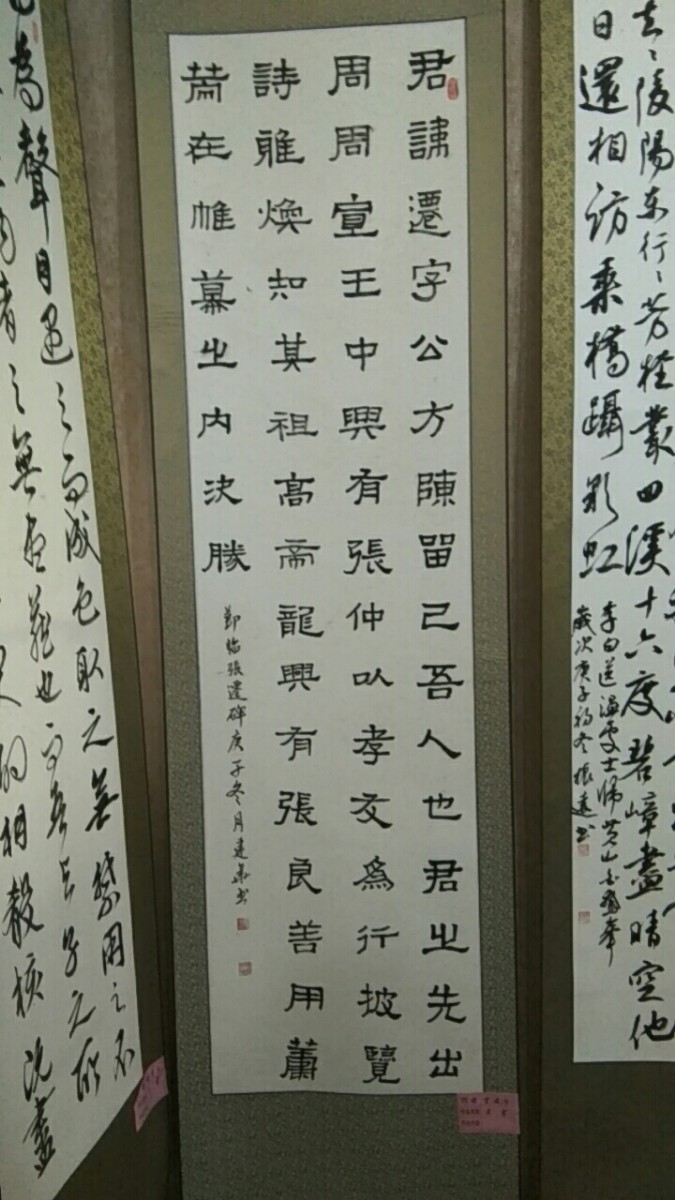 君諱遷字公方陳留己吾人也君之先出
周周宣王中興有張仲以孝友為行披覽
詩雅煥知其祖高帝龍興有張良善用籌
策在帷幕之內決勝
節臨張遷碑庚子冬月建弟书
去去陵陽東行行芳桂叢回溪十六度碧嶂盡晴空他
日還相訪乘橋躡彩虹
李白送温處士歸黄山白鵝峰
歲次庚子初冬振達书
為聲目遇之而成色取之無禁用之不
者之無盡藏也而吾與子之所
相殽核既盡